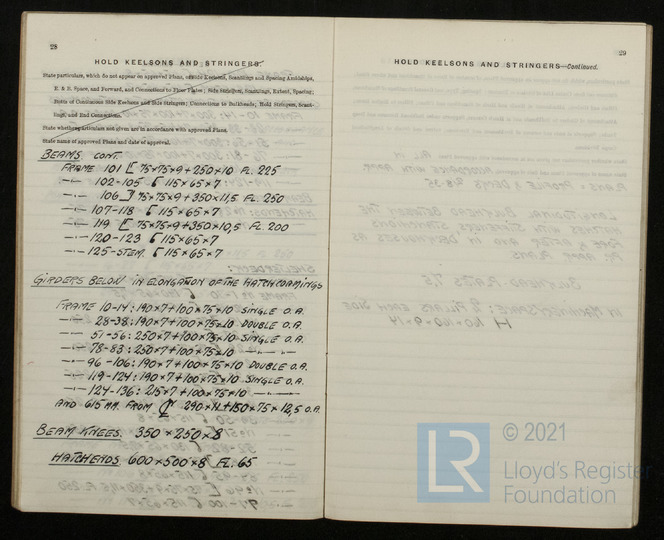 28
HOLD KEELSONS AND STRINGERS.
State particulars, which do not appear on approved Plans, of Side Keelsons, Scantlings and Spacing Amidships,
E. & B. Space, and Forward, and Connections to Floor Plates; Side Stringers, Scantlings, Extent, Spacing;
Butts of Continuous Side Keelsons and Side Stringers; Connections to Bulkheads; Hold Stringers, Scant-
lings, and End Connections.
State whether particulars not given are in accordance with approved Plans.
State name of approved Plans and date of approval.
BEAMS CONT.
FRAME 101 [ 75×75×9+250×10 FL. 225
—"— 102-105 [ 115×65×7.
—"— 106 ] 75×75×9+350×11,5 FL. 250
—"— 107-118 [ 115×65×7
—"— 119 [ 75×75×9+350×10,5 FL. 200
—"— 120-123 [ 115×65×7
—"— 125-STEM. [ 115×65×7
GIRDERS BELOW IN ELONGATION OF THE HATCHCOAMINGS
FRAME 10-14: 190×7+100×75×10 SINGLE O.A.
—"— 28-38: 190×7+100×75×10 DOUBLE O.A.
—"— 51-56: 250×7+100×75×10 SINGLE O.A.
—"— 78-83: 250×7+100×75×10 —"— —"—
—"— 96-106: 190×7+100×75×10 DOUBLE O.A.
—"— 119-124: 190×7+100×75×10 SINGLE O.A.
—"— 124-136: 215×7+100×75×10 —"—
AND 615 MM. FROM ℄ 290×11+150×75×12,5 O.A.
BEAM KNEES. 350×250×8
HATCHENDS 600×500×8 FL. 65
29
HOLD KEELSONS AND STRINGERS—Continued.
LR © 2021
Lloyd's Register
Foundation